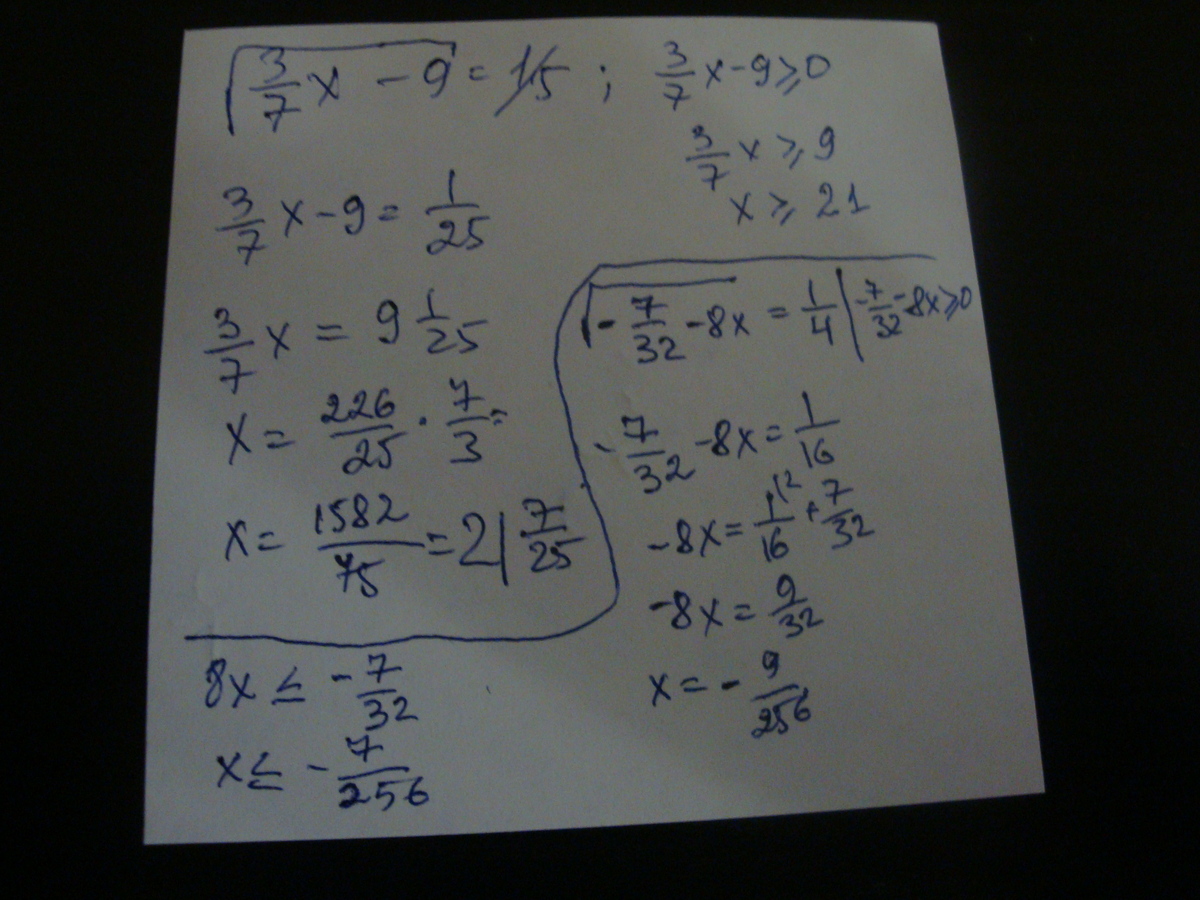 √(3/7 x - 9) = 1/5 ; 3/7 x - 9 ⩾ 0
3/7 x ⩾ 9
x ⩾ 21
3/7 x - 9 = 1/25
3/7 x = 9 1/25
x = 226/25 · 7/3 =
x = 1582/75 = 21 7/25
√(- 7/32 - 8x) = 1/4 | - 7/32 - 8x ⩾ 0
- 7/32 - 8x = 1/16
- 8x = 1/16 ^(2 + 7/32
- 8x = 9/32
x = - 9/256
8x ≤ - 7/32
x ≤ - 7/256